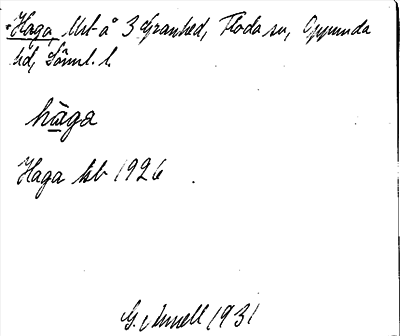 *Haga, Utb å 3 Granhed, Floda sn, Oppunda
hd, Sörml. l.
hàga
Haga kb 1926
G. Annell 1931